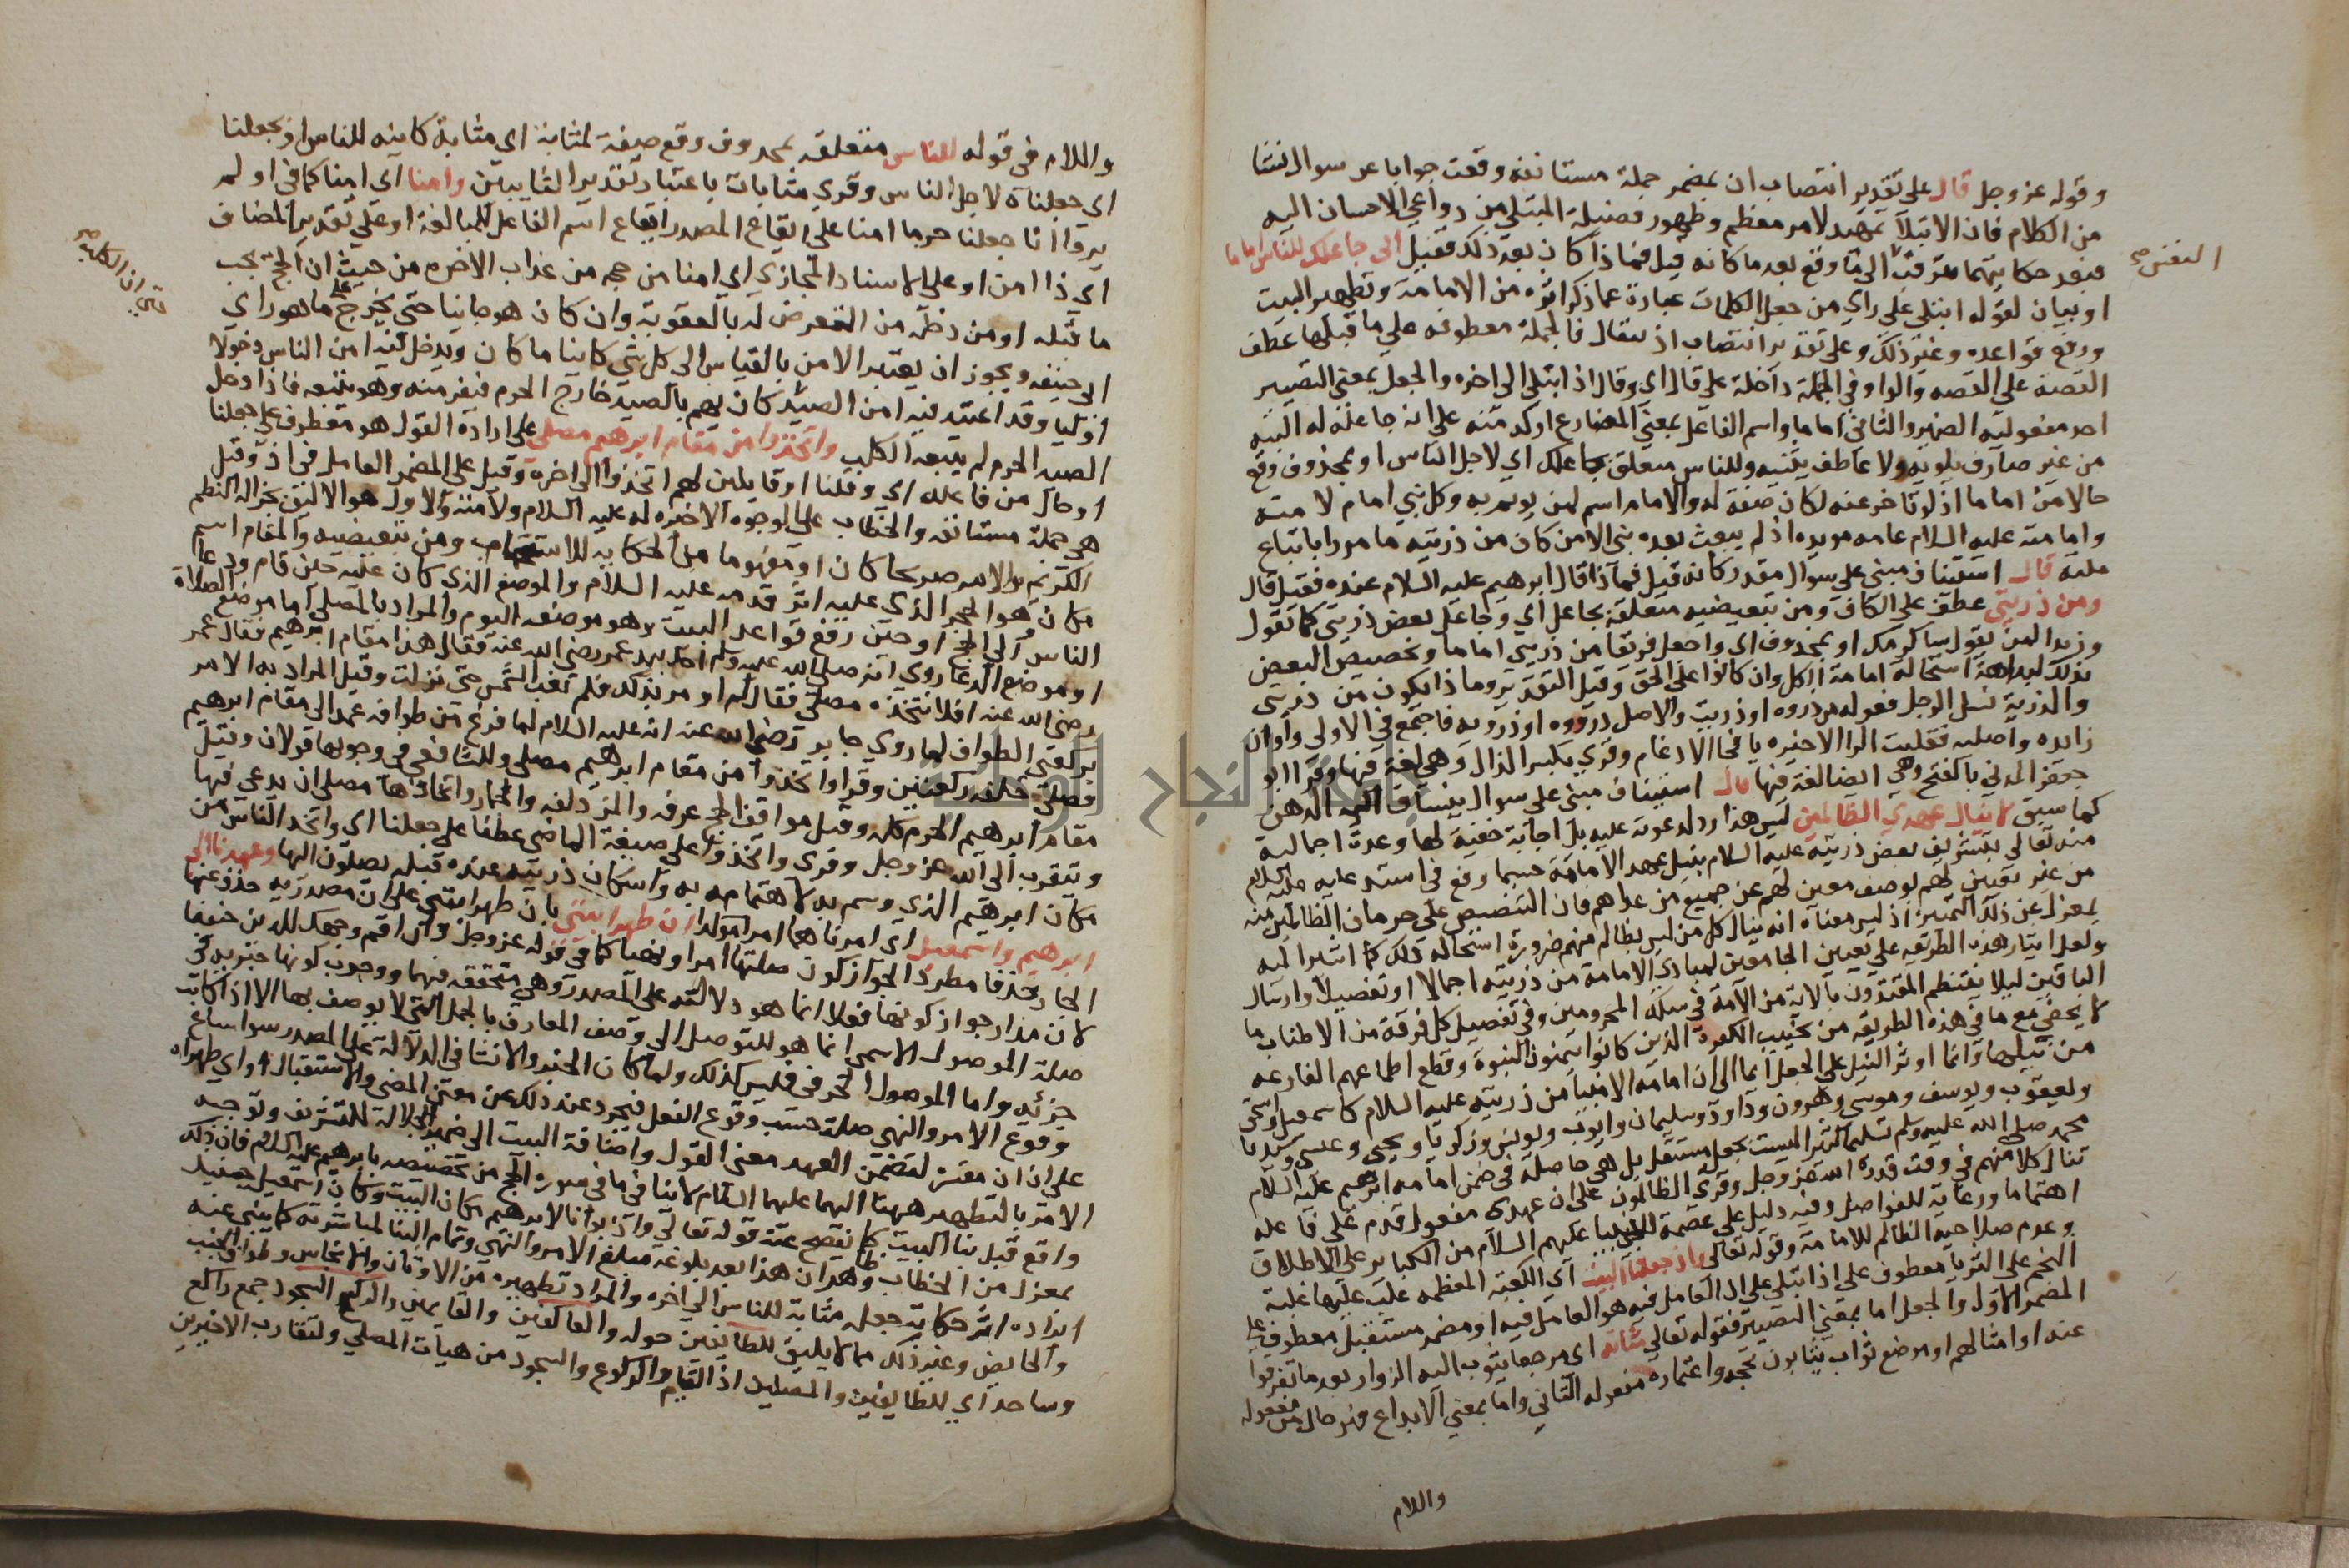 وقوله عز وجل قال على تقدير انتصاب ان بمضمر جملة مستانفة وقعت جوابا عن سوال نشا
من الكلام فان الابتلا تمهيد لامر معظم وظهور فضيلة المبتلي من دواعي الاحسان اليه
فبعد حكايتهما تترقب الى ما وقع بعدهما كانه قيل فماذا كان بعد ذلك فقيل انى جاعلك للناس اماما
النفس صح
او بيان لقوله ابتلى على راي من جعل الكلمات عبارة عما ذكر اثره من الامامة وتطهير البيت
ورفع قواعده وغير ذلك وعلى تقدير انتصاب اذ بقال فالجملة معطوفه على ما قبلها عطف
القصة على القصه والواو في الجملة داخلة على قال اي وقال اذ ابتلى الى اخره والجعل بمعنى التصيير
احد مفعوليه الضمير والثاني اماما واسم الفاعل بمعنى المضارع اوكد منه على انه جاعل له البته
من غير صارف يلويه ولا عاطف يثنيه وللناس متعلق بجاعلك اي لاجل الناس او بمحذوف وقع
حالا من اماما اذ لو تاخر عنه لكان صفة له والامام اسم لمن يوتم به وكل نبي امام لامته
وامامته عليه السلام عامه موبده اذ لم يبعث بعده نبي الا من كان من ذريته مامورا باتباع
ملته قال استئناف مبني على سوال مقدر كانه قيل فماذا قال ابرهيم عليه السلام عنده فقيل قال
ومن ذريتي عطف على الكاف ومن تبعيضيه متعلقة بجاعل اي وجاعل بعض ذريتي كما تقول
وزيدا لمن يقول ساكرمك او بمحذوف اي واجعل فريقا من ذريتي اماما وتخصيص البعض
بذلك لبداهة استحالة امامة الكل وان كانوا على الحق وقيل التقدير وماذا يكون من ذريتي
والذرية نسل الرجل فعوله من ذروه او ذريت والاصل ذرووه او ذرويه فاجتمع في الاولى واوان
زائده واصليه فقلبت الراا الاخيره يا فجا الادغام وقري بكسر الذال وهي لغة فيها وقرا ابو
جعفر المدني بالفتح وهي ايضا لغة فيها قال استيناف مبني على سوال ينساق اليه الذهن
كما سبق لا ينال عهدي الظالمين ليس هذا ردا لدعوته عليه بل اجابة خفية لها وعدة اجمالية
منه تعالى بتشريف بعض ذريته عليه السلام بنيل عهد الامامة حسبما وقع في استدعايه عليه السلام
من غير تعيين لهم بوصف معين لهم عن جميع من عداهم فان التنصيص على حرمان الظالمين منه
بمعزل عن ذلك التمييز اذ ليس معناه انه ينال كل من ليس بظالم منهم ضرورة استحالة ذلك كما اشير اليه
ولعل ايثار هذه الطريقه على تعيين الجامعين لمبادي الامامة من ذريته اجمالا او تفصيلا وارسال
الباقين ليلا ينتظم المقتدون بالاية من الامة في سلك المحرومين وفي تفصيل كل فرقة من الاطناب ما
لا يخفى مع ما في هذه الطريقه من تخييب الكفرة الذين كانوا يتمنون النبوة وقطع اطماعهم الفارغه
من نيلها وانما اوثر النيل على الجعل ايما الى ان امامة الانبيا من ذريته عليه السلام كاسمعيل واسحق
ويعقوب ويوسف وموسى وهرون وداود وسليمان وايوب ويونس وزكريا ويحيى وعيسى وسيدنا
محمد صلى الله عليه وسلم تسليما كثيرا ليست بجعل مستقل بل هي حاصلة في ضمن امامة ابرهيم عليه السلام
تنال كلا منهم في وقت قدره الله عز وجل وقرى الظالمون على ان عهدى مفعول قدم على فاعله
اهتماما ورعاية للفواصل وفيه دليل على عصمة الانبيا عليهم السلام من الكبائر على الاطلاق
وعدم صلاحية الظالم للامامة وقوله تعالى واذ جعلنا البيت اي الكعبة المعظمه غلب عليها غلبة
النجم على الثريا معطوف على اذ ابتلى على ان العامل فيه هو العامل فيه او مضمر مستقبل معطوف على
المضمر الاول والجعل اما بمعنى التصيير فقوله تعالى مثابة اي مرجعا يثوب اليه الزوار بعد ما تفرقوا
عنه او امثالهم او موضع ثواب يثابون بحجه واعتماره مفعوله الثاني واما بمعنى الابداع فهو حال من مفعوله
واللام
واللام في قوله للناس متعلقه بمحذوف وقع صفة لمثابة اي مثابة كاينه للناس او بجعلنا
اي جعلناه لاجل الناس وقري مثابات باعتبار تقدير الثايبين وامنا اي امنا كما في او لم
يروا انا جعلنا حرما امنا على ايقاع المصدر ايقاع اسم الفاعل للمبالغة او على تقدير المضاف
اي ذا امن او على الاسناد المجازي اي امنا من حجه من عذاب الاخره من حيث ان الحج يجب
ما قبله او من دخله من التعرض له بالعقوبة وان كان هو جانيا حتى يخرج على ما هو راي
ابي حنيفه ويجوز ان يعتبر الامن بالقياس الى كل شي كاينا ما كان ويدخل فيه امن الناس دخولا
اوليا وقد اعتيد فيه امن الصيد كان يهم بالصيد خارج الحرم فيفر منه وهو يتبعه فاذا دخل
الصيد الحرم لم يتبعه الكلب واتخذوا من مقام ابرهيم مصلى على ارادة القول هو معطوف على جعلنا
او حال من فاعله اي وقلنا او قايلين لهم اتخذوا الى اخره وقيل على المضمر العامل في اذ وقيل
هي جملة مستانفه والخطاب على الوجوه الاخيره له عليه السلام ولامته والاول هو الاليق بجزالة النظم
الكريم والامر صريحا كان او مفهوما من الحكاية للاستحباب ومن تبعيضيه والمقام اسم
مكان هو الحجر الذي عليه اثر قدمه عليه السلام والموضع الذي كان عليه حين قام ودعا
الناس الى الحج او حين رفع قواعد البيت وهو موضعه اليوم والمراد بالمصلى اما موضع الصلاة
او موضع الدعا روي انه صلى الله عليه وسلم اخذ بيد عمر رضي الله عنه فقال هذا مقام ابرهيم فقال عمر
رضي الله عنه افلا نتخذه مصلى فقال لم اومر بذلك فلم تغب الشمس حتى نزلت وقيل المراد به الامر
بركعتي الطواف لما روي جابر رضي الله عنه انه عليه السلام لما فرغ من طوافه عمد الى مقام ابرهيم
فصلى خلفه ركعتين وقرا واتخذوا من مقام ابرهيم مصلى وللشافعي في وجوبها قولان وقيل
مقام ابرهيم الحرم كله وقيل مواقف الحج عرفه والمزدلفه والجمار واتخاذها مصلى ان يدعى فيها
ويتقرب الى الله عز وجل وقري واتخذوا على صيغة الماضي عطفا على جعلنا اي واتخذ الناس من
مكان ابرهيم الذي وسم به لاهتمامه به واسكان ذريته عنده قبلة يصلون اليها وعهدنا الى
ابرهيم واسمعيل اي امرناهما امرا موكدا ان طهرا بيتي بان طهرا بيتي على ان مصدريه حذف عنها
الجار حذفا مطردا لجواز كون صلتها امرا ونهيا كما في قوله عز وجل وان اقم وجهك للدين حنيفا
لان مدار جواز كونها فعلا انما هو دلالته على المصدر وهي متحققه فيهما ووجوب كونها خبريه في
صلة الموصول الاسمي انما هو للتوصل الى وصف المعارف بالجمل التي لا يوصف بها الا اذا كانت
خبريه واما الموصول الحرفي فليس كذلك ولما كان الخبر والانشا في الدلالة على المصدر سوا ساغ
وقوع الامر والنهي صلة حسب وقوع الفعل فيجرد عند ذلك عن معنى المضي والاستقبال او اي طهراه
على ان ان مفسرة لتضمن العهد معنى القول واضافة البيت الى ضمير الجلالة للتشريف وتوجيه
الامر بالتطهير ههنا اليهما عليهما السلام لا ينافي ما في سورة الحج من تخصيصه بابرهيم عليه السلام فان ذلك
واقع قبل بنا البيت كما يفصح عنه قوله تعالى واذ بوانا لابرهيم مكان البيت وكان اسمعيل حينيذ
بمعزل من الخطاب وظاهر ان هذا بعد بلوغه مبلغ الامر والنهي وتمام البنا لمباشرته كما ينبي عنه
ايراده اثر حكاية جعله مثابة للناس الى اخره والمراد تطهيره من الاوثان والانجاس وطواف الجنب
والحايض وغير ذلك مما لا يليق للطايفين حوله والعاكفين والقايمين والركع السجود جمع راكع
وساجد اي للطايفين والمصلين اذ القيام والركوع والسجود من هيات المصلي ولتقارب الاخيرين